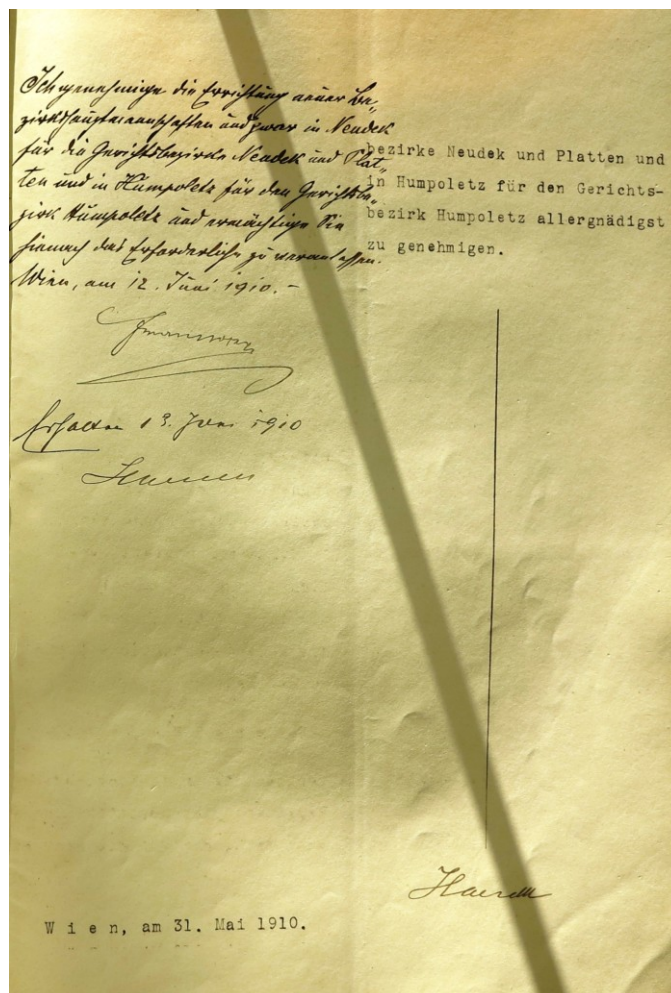 Ich genehmige die Errichtung neuer Be-
zirkshauptmannschaften und zwar in Neudek
für die Gerichtsbezirke Neudek und Plat-
ten und in Humpoletz für den Gerichtsbe-
zirk Humpoletz und ermächtige Sie
hienach das Erforderliche zu veranlassen.
Wien, am 12. Juni 1910.-
Erhalten 13. Juni 1910
Haerdtl
bezirke Neudek und Platten und
in Humpoletz für den Gerichts-
bezirk Humpoletz allergnädigst
zu genehmigen.
Haerdtl
Wien, am 31. Mai 1910.